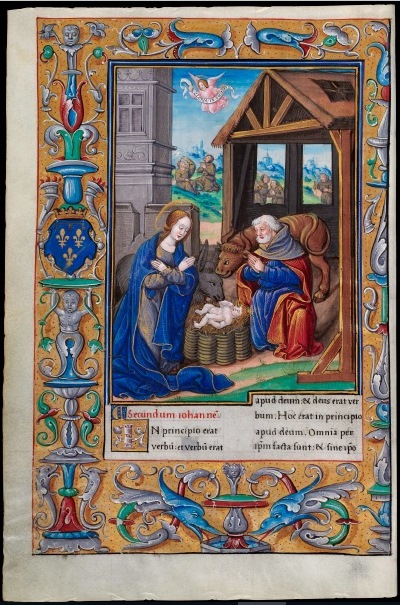 Secundum iohannē
IN principio erat
verbū: et verbū erat
apud deum: & deus erat ver
bum. Hoc erat in principio
apud deum. Omnia per
ip̄m facta sunt: & sine ip̄o